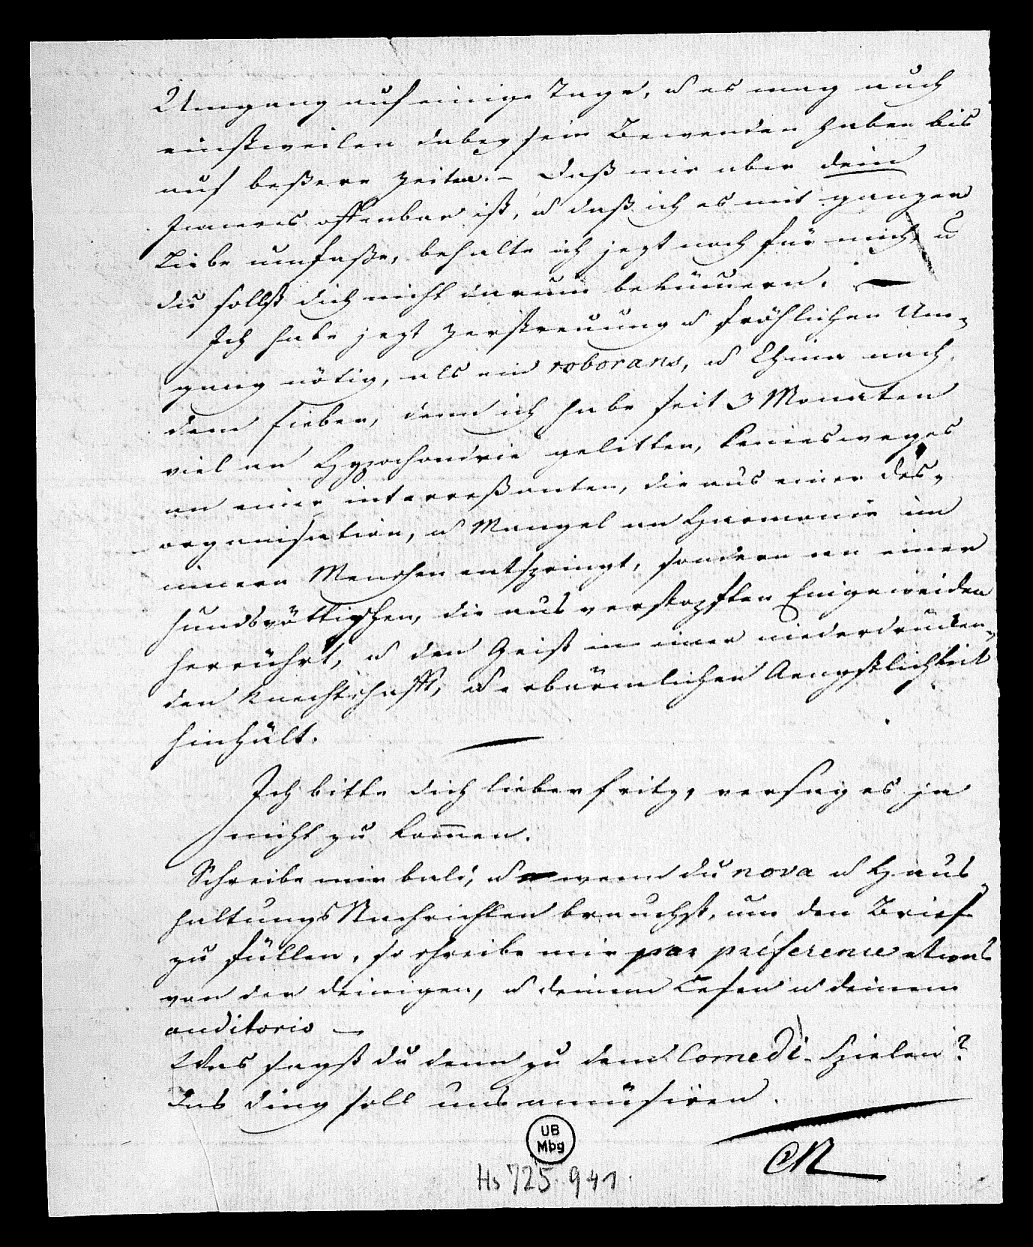 Umgang auf einige Tage, u es mag auch
einstweilen dabey sein Bewenden haben bis
auf beßere Zeiten. – Daß mir aber dein
Inneres offenbar ist, u daß ich es mit ganzer
Liebe umfaße, behalte ich jezt noch für mich, u
du sollst dich nicht darum bekümern. –
Ich habe jezt Zerstreuung u fröhlichen Um-
gang nötig, als ein roborans, u China nach
dem Fieber, denn ich habe seit 3 Monaten
viel an Hypochondrie gelitten, keinesweges
an einer interreßanten, die aus einer Des-
organisation, u Mangel an Harmonie im
innern Menschen entspringt, sondern an einer
hundsvöttischen, die aus verstopften Eingeweiden
herrührt, u den Geist in einer niederdrücken-
den Knechtschafft, u erbärmlichen Aengstlichkeit
hinhält.
Ich bitte dich lieber Fritz, versag es ja
nicht zu komen.
Schreibe mir bald, u wenn du nova u Haus
haltungs Nachrichten brauchst, um den Brief
zu füllen, so schreibe mir par préference etwas
von den deinigen, u deinem Lesen u deinem
auditorio –
Was sagst du denn zu dem Comedi-Spielen?
Das Ding soll uns amüsiren.
CR
UB
Mbg
Hs 725:941